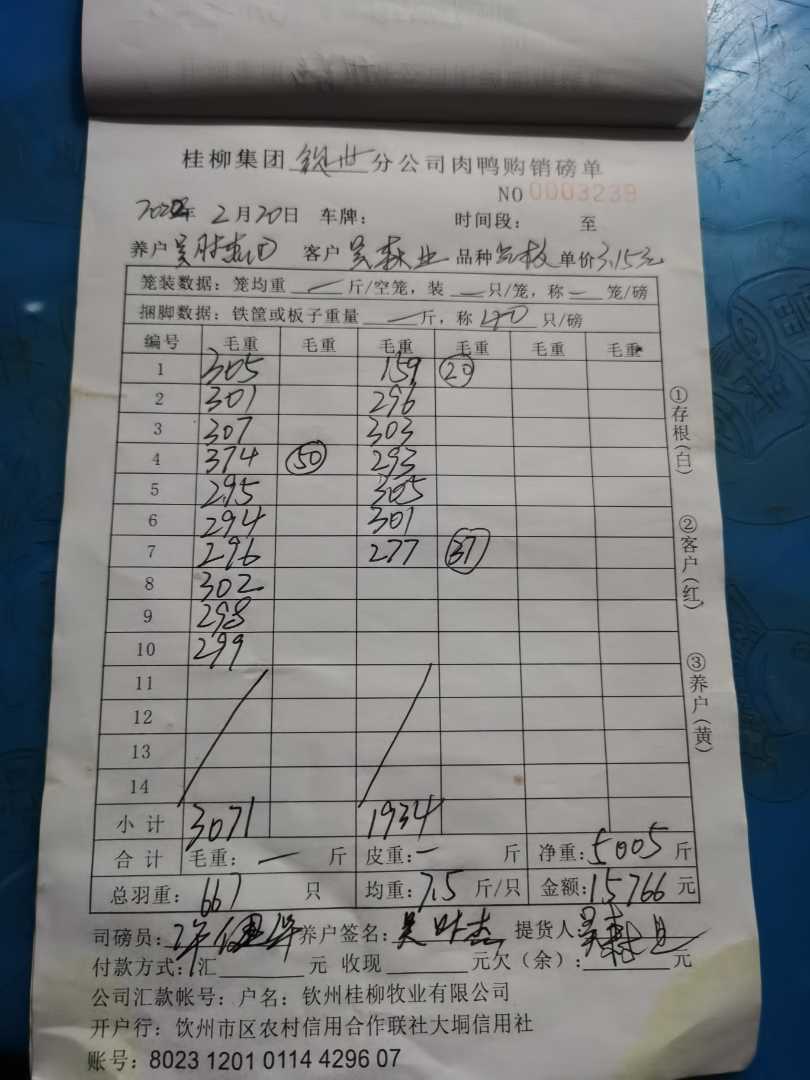 桂柳集团 钦州 分公司肉鸭购销磅单
NO 0003239
2022年 2月20日 车牌： 时间段： 至
养户 吴 客户 吴森业 品种 单价 3.15元
笼装数据：笼均重 — 斤/空笼，装 — 只/笼，称 — 笼/磅
捆脚数据：铁筐或板子重量 — 斤，称 40 只/磅
编号 毛重 毛重 毛重 毛重 毛重 毛重
1 305 159 20
2 301 296
3 307 303
4 374 50 293
5 295 305
6 294 301
7 296 277 37
8 302
9 298
10 299
11
12
13
14
小计 3071 1934
合计 毛重： — 斤 皮重： — 斤 净重：5005 斤
总羽重：667 只 均重：7.5 斤/只 金额：15766 元
司磅员： 养户签名：吴叶杰 提货人：吴森业
付款方式：汇 元 收现 元欠（余）： 元
公司汇款帐号：户名：钦州桂柳牧业有限公司
开户行：钦州市区农村信用合作联社大垌信用社
账号：8023 1201 0114 4296 07
①存根（白）
②客户（红）
③养户（黄）